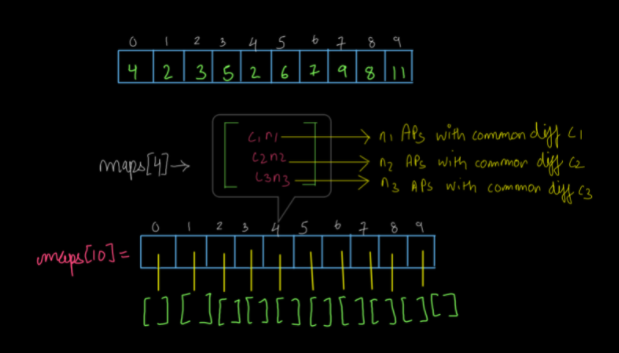 0 1 2 3 4 5 6 7 8 9
4 2 3 5 2 6 7 9 8 11
c1 n1 → n1 APs with common diff c1
maps[4] → c2 n2 → n2 APs with common diff c2
c3 n3 → n3 APs with common diff c3
0 1 2 3 4 5 6 7 8 9
maps[10] =
[ ] [ ] [ ] [ ] [ ] [ ] [ ] [ ] [ ] [ ]